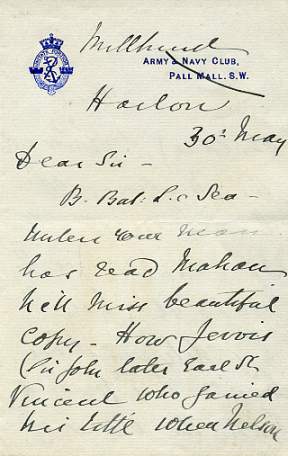 Millhurst
ARMY & NAVY CLUB,
PALL MALL. S.W.
Harlow
30th May
Dear Sir -
B. Bat: L. Sea -
Unless your man
has read Mahan
he'll miss beautiful
copy - How Jervis
(Sir John later Earl St
Vincent who gained
his title when Nelson